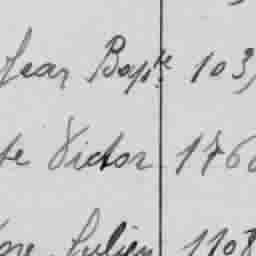 Jean Bapte 103
te Victor 176
re Julien 1108